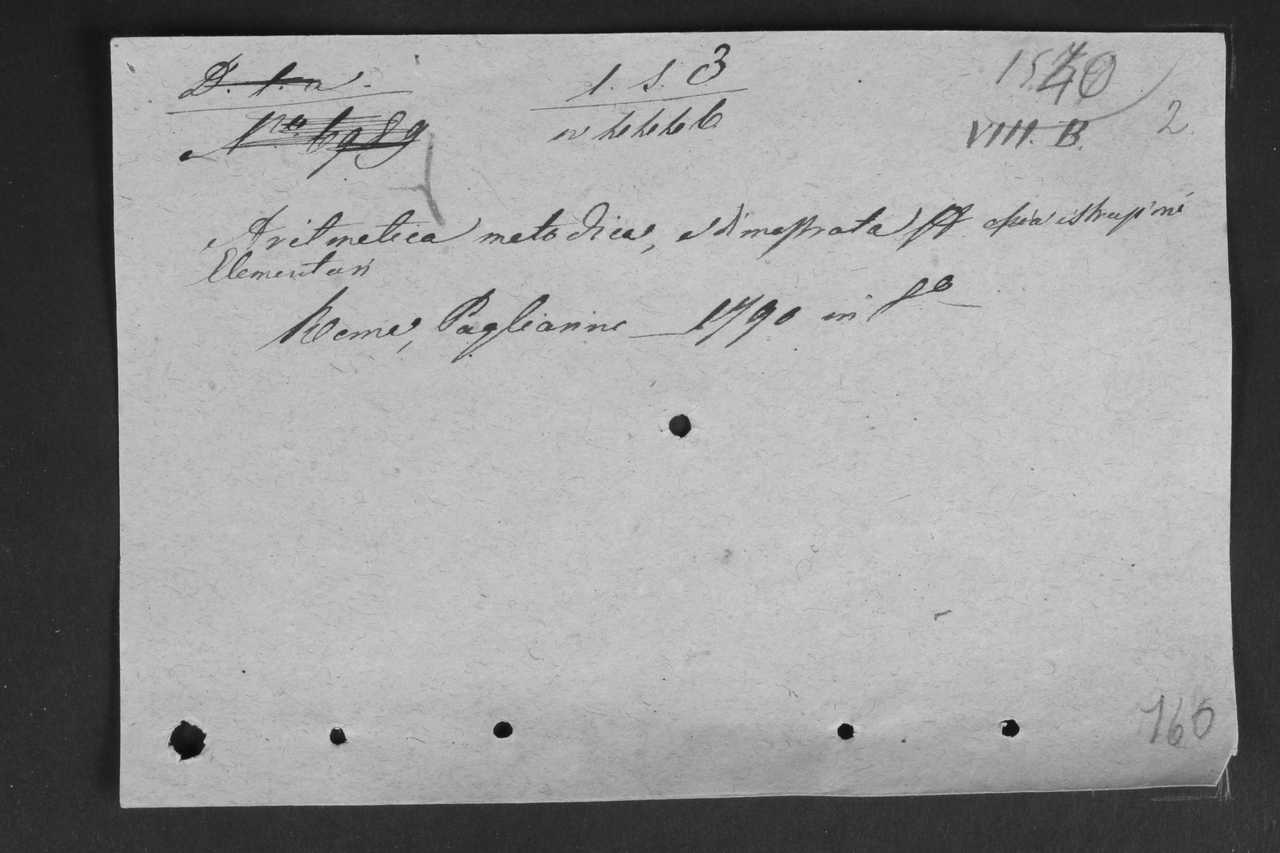 D. 1. a.
1. S. 3
1540
No 6989
n 4446
VIII. B.
2
Aritmetica metodica, e dimostrata ossia istruzioni
Elementari
Roma, Pagliarini 1790 in 8o
160